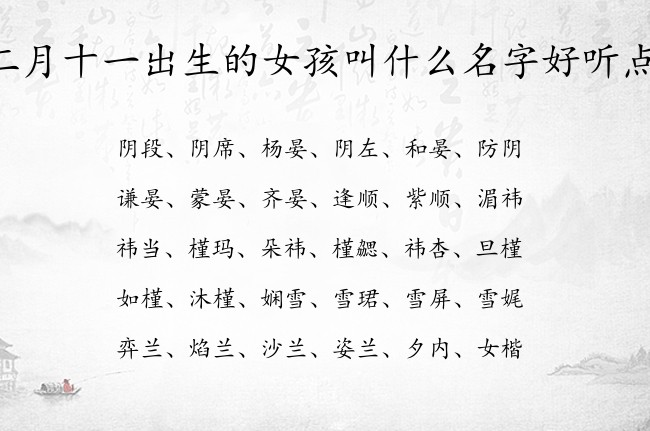 二月十一出生的女孩叫什么名字好听点
阴段、阴席、杨晏、阴左、和晏、防阴
谦晏、蒙晏、齐晏、逢顺、紫顺、湄祎
祎当、槿玛、朵祎、槿勰、祎杏、旦槿
如槿、沐槿、娴雪、雪珺、雪屏、雪娓
弈兰、焰兰、沙兰、姿兰、夕内、女楷